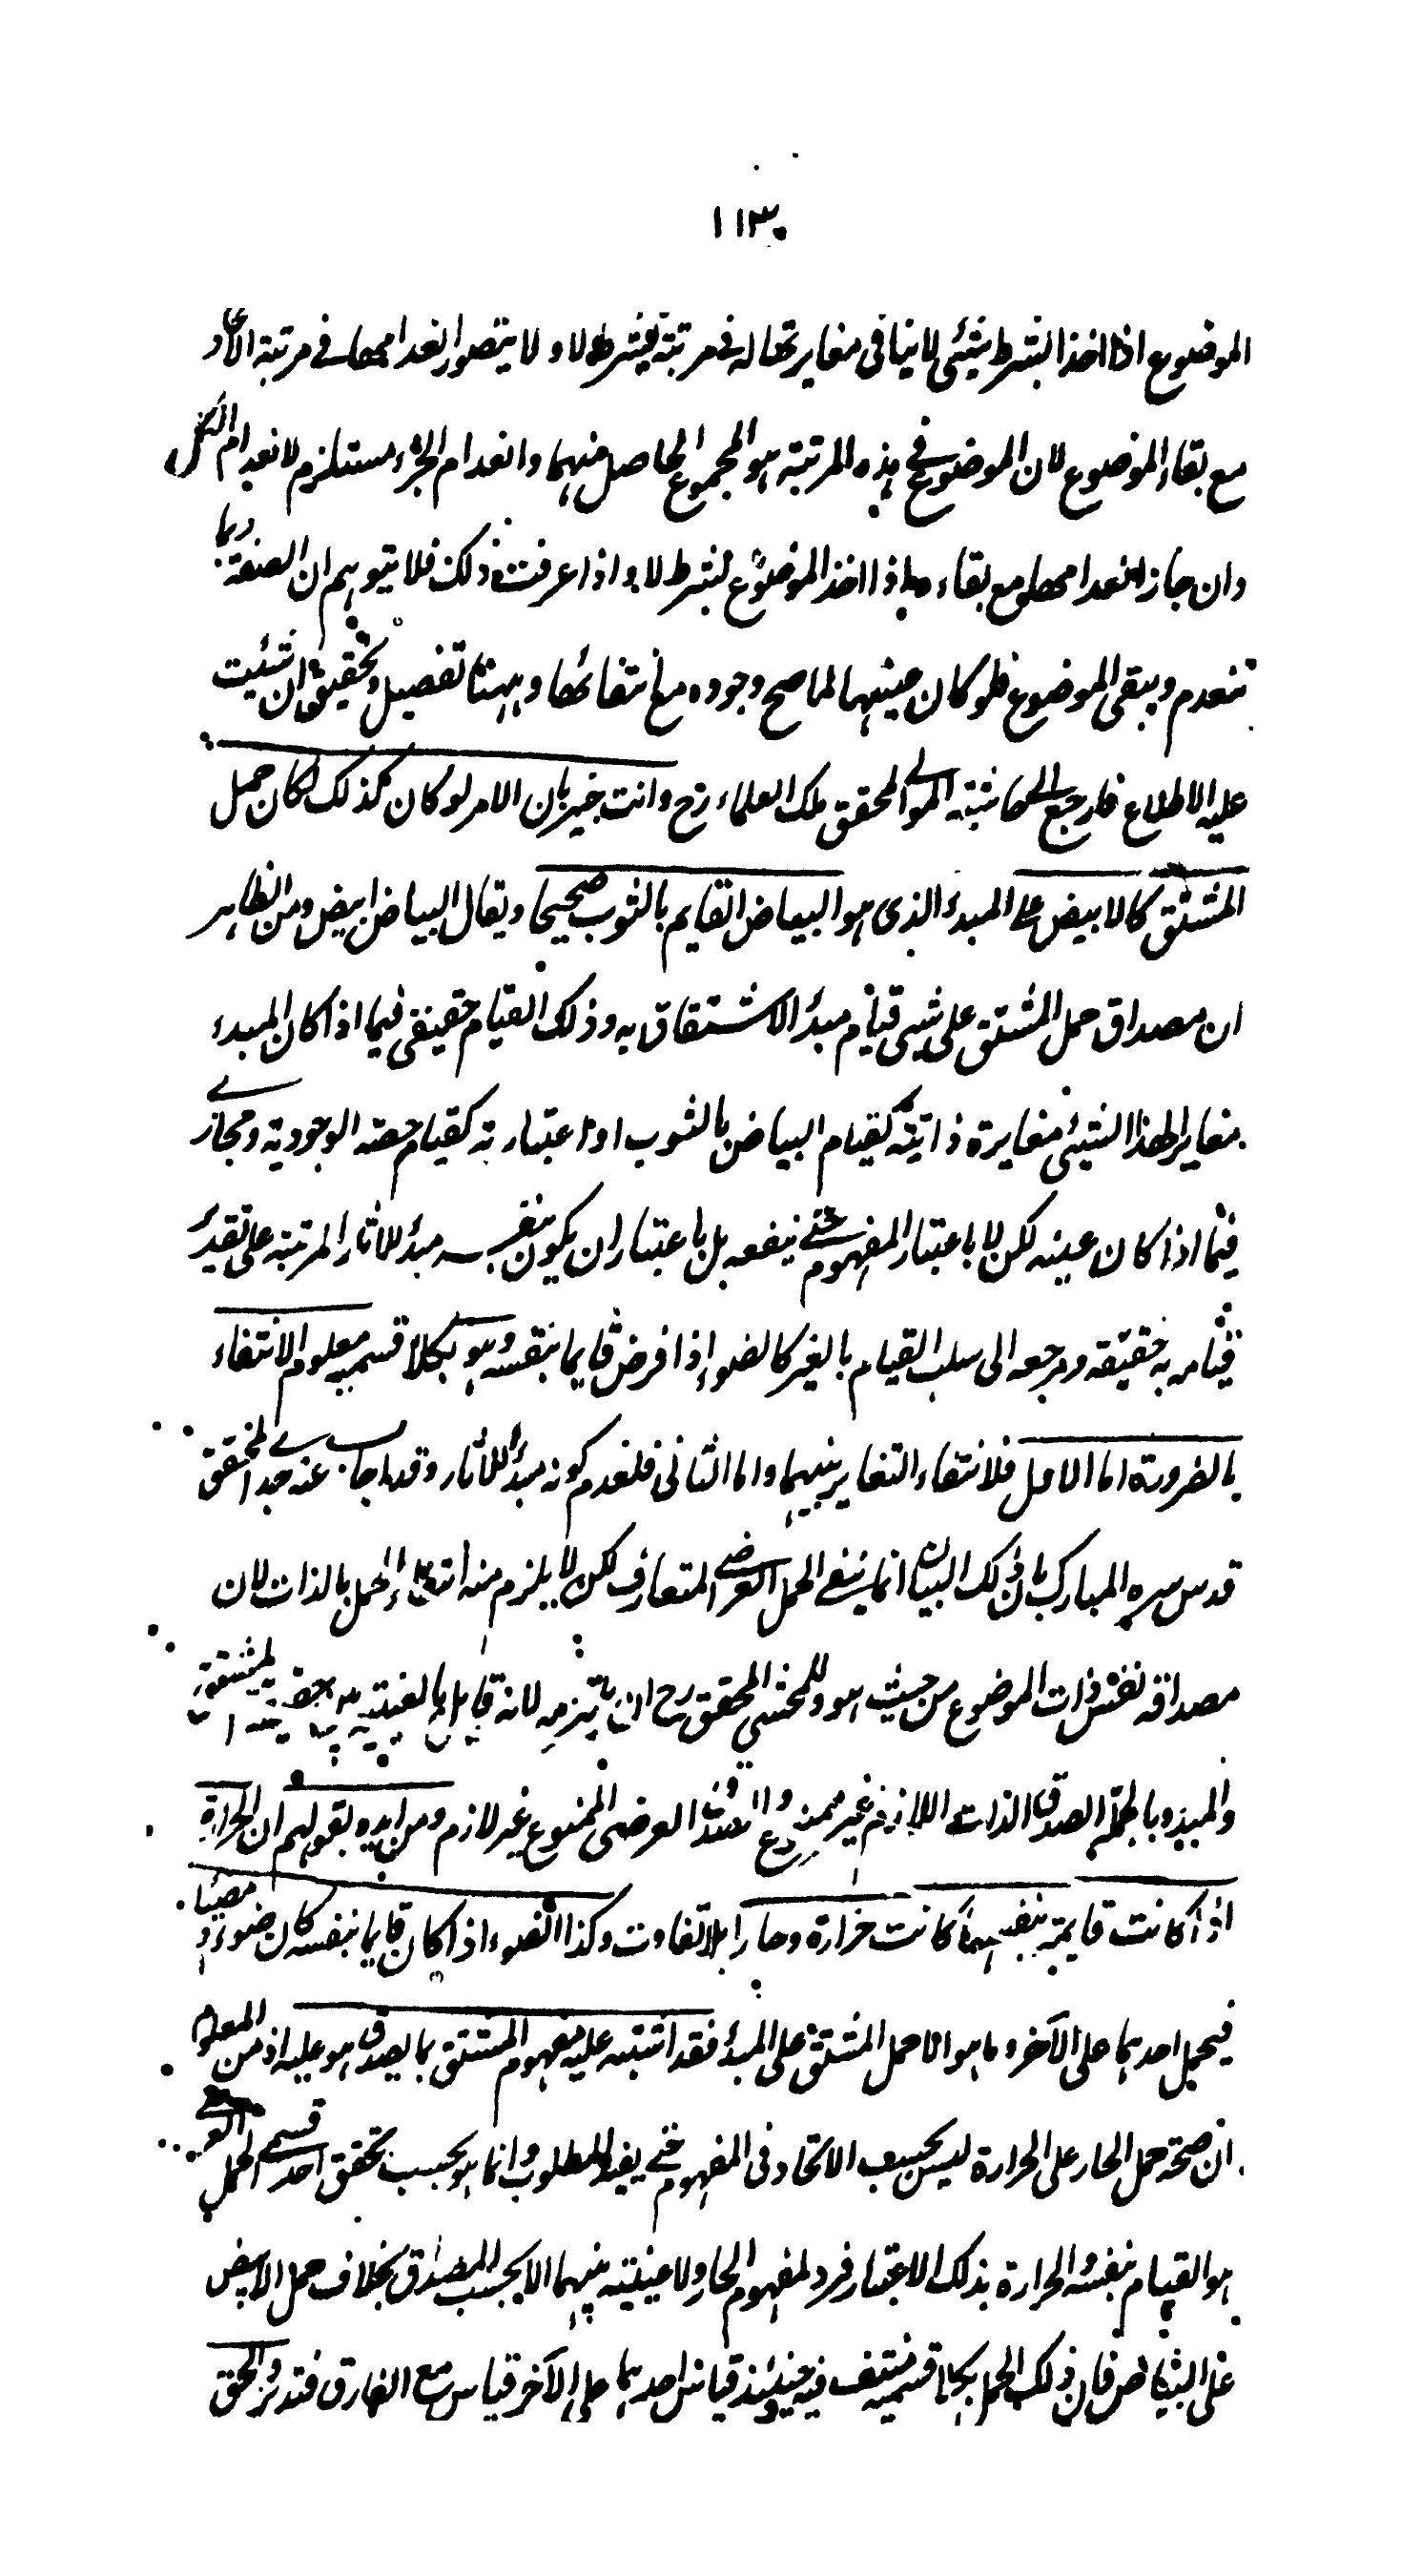 ١١٣
الموضوع اذا اخذ البشرط شيئ لا ينافى مغايرتها له فى مرتبة بشرط لا و لا يتصور انعدامها فى مرتبة الاتحاد
مع بقاء الموضوع لان الموضوع فى هذه المرتبة هو المجموع الحاصل منهما وانعدام الجزء مستلزم لانعدام الكل
وان جاز انعدامها مع بقاء اذا اخذ الموضوع بشرط لا واذا عرفت ذلك فلا تتوهم ان الصفة ربما
تنعدم ويبقى الموضوع فلو كان عينها لما صح وجوده مع انتفائها وههنا تفصيل وتحقيق ان شئت
عليه الاطلاع فارجع الى حاشية المولى المحقق ملك العلماء رح وانت خبير بان الامر لو كان كذلك لكان حمل
المشتق كالابيض على المبدء الذى هو البياض القايم بالثوب صحيحا ويقال البياض ابيض ومن الظاهر
ان مصداق حمل المشتق على شيى قيام مبدأ الاشتقاق به وذلك القيام حقيقى فيما اذا كان المبدء
مغايرا لهذا الشيئى مغايرة ذاتية كقيام البياض بالثوب او اعتبارية كقيام حصته الوجودية ومجازى
فيما اذا كان عينه لكن لا باعتبار المفهوم حتى ينفعه بل باعتبار ان يكون بنفسه مبدأ للاثار المرتبة على تقدير
قيامه به حقيقة ومرجعه الى سلب القيام بالغير كالضوء اذا فرض قايما بنفسه وهو بكلا قسميه معلوم الانتفاء
بالضرورة اما الاول فلانتفاء التغاير بينهما واما الثانى فلعدم كونه مبدأ للآثار وقد اجاب عنه جدى المحقق
قدس سره المبارك بان ذلك البيان انما ينفى الحمل العرضى المتعارف لكن لا يلزم منه انتفاء الحمل بالذات لان
مصداقه نفس ذات الموضوع من حيث هو وللمحشى المحقق رح ان يلتزمه لانه قايل بالعينية المشتق
والمبدء وبالجملة الصدق الذات اللازم غير ممنوع العرضى الممنوع غير لازم ومن ايده بقولهم ان الحرارة
اذا كانت قايمة بنفسها كانت حرارة وحارا بلا تفاوت وكذا الضوء اذا كان قايما بنفسه كان ضوء و مضيئا
فيحمل احدهما على الآخر وما هو الا حمل المشتق على المبدأ فقد اشتبه عليه مفهوم المشتق بما يصدق هو عليه اذ من المعلوم
ان صحة حمل الحار على الحرارة ليس بحسب الاتحاد فى المفهوم حتى يفيد المطلوب وانما هو بحسب تحقق احد قسمى الحمل
هو القيام بنفسه الحرارة بذلك الاعتبار فرد لمفهوم الحار ولا عينية بينهما الا بحسب المصداق بخلاف حمل الابيض
على البياض فان ذلك الحمل بكلا قسميه منتف فيه حينئذ قياس احدهما على الآخر قياس مع الفارق فتدبر والحق